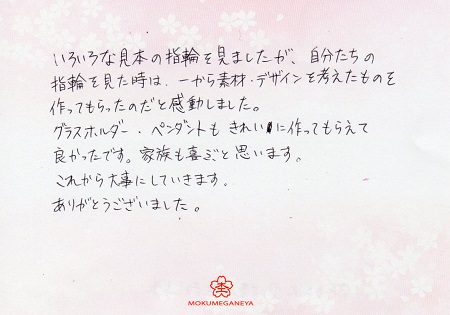 いろいろな見本の指輪を見ましたが、自分たちの
指輪を見た時は、一から素材・デザインを考えたものを
作ってもらったのだと感動しました。
グラスホルダー・ペンダントも きれいに作ってもらえて
良かったです。家族も喜ぶと思います。
これから大事にしていきます。
ありがとうございました。
MOKUMEGANEYA